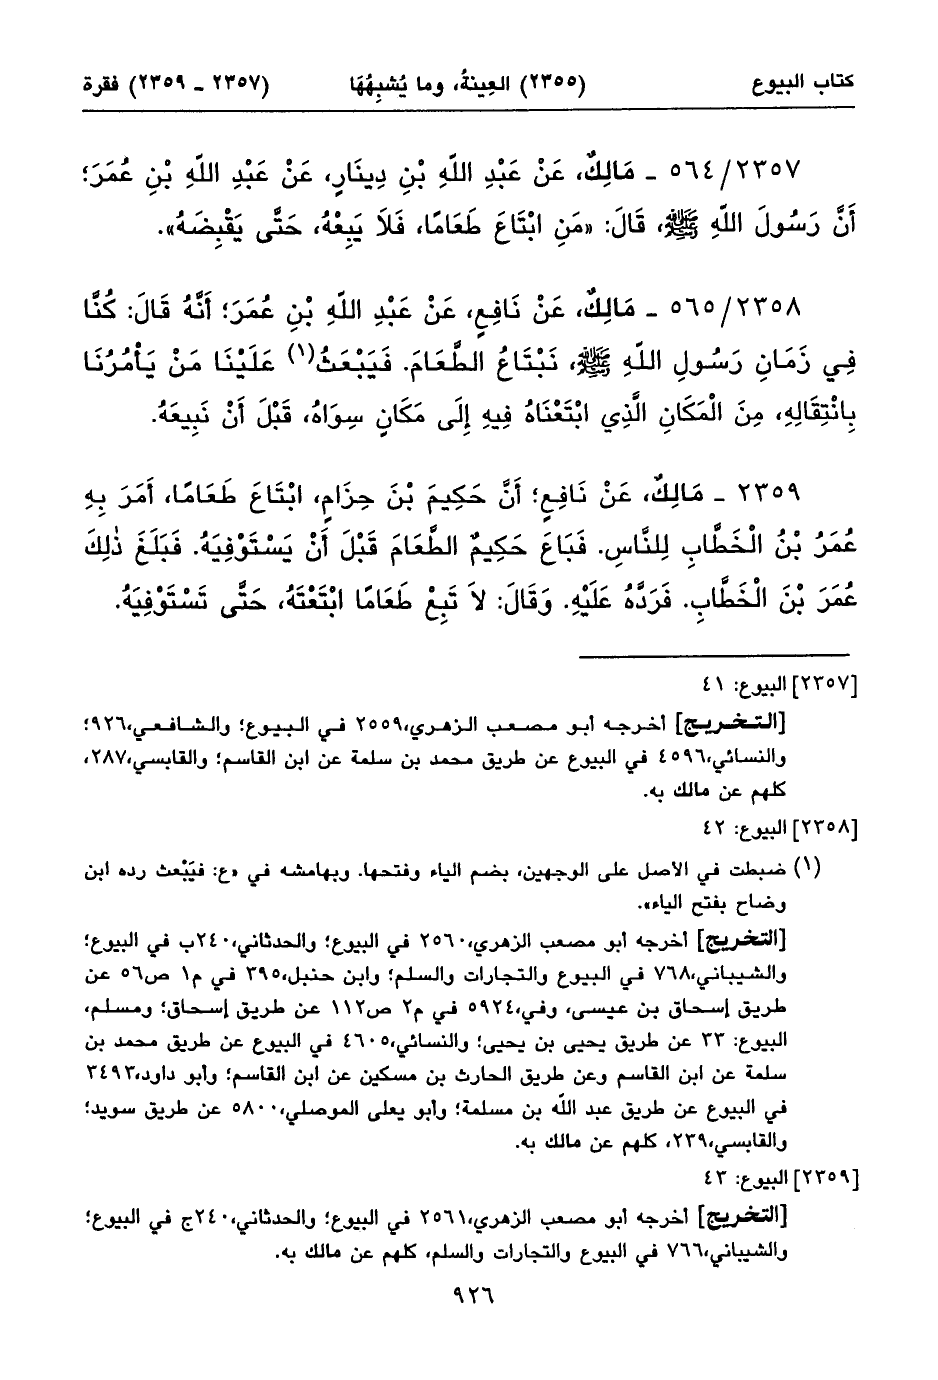 كتاب البيوع (٢٣٥٥) العِينةُ، وما يُشبِهُهَا (٢٣٥٧ ـ ٢٣٥٩) فقرة
٥٦٤/٢٣٥٧ ـ مَالِكٌ، عَنْ عَبْدِ اللَّهِ بْنِ دِينَارٍ، عَنْ عَبْدِ اللَّهِ بْنِ عُمَرَ؛
أَنَّ رَسُولَ اللَّهِ ﷺ، قَالَ: «مَنِ ابْتَاعَ طَعَامًا، فَلاَ يَبِعْهُ، حَتَّى يَقْبِضَهُ».
٥٦٥/٢٣٥٨ ـ مَالِكٌ، عَنْ نَافِعٍ، عَنْ عَبْدِ اللَّهِ بْنِ عُمَرَ؛ أَنَّهُ قَالَ: كُنَّا
فِي زَمَانِ رَسُولِ اللَّهِ ﷺ، نَبْتَاعُ الطَّعَامَ. فَيَبْعَثُ(١) عَلَيْنَا مَنْ يَأْمُرُنَا
بِانْتِقَالِهِ، مِنَ الْمَكَانِ الَّذِي ابْتَعْنَاهُ فِيهِ إِلَى مَكَانٍ سِوَاهُ، قَبْلَ أَنْ نَبِيعَهُ.
٢٣٥٩ ـ مَالِكٌ، عَنْ نَافِعٍ؛ أَنَّ حَكِيمَ بْنَ حِزَامٍ، ابْتَاعَ طَعَامًا، أَمَرَ بِهِ
عُمَرُ بْنُ الْخَطَّابِ لِلنَّاسِ. فَبَاعَ حَكِيمٌ الطَّعَامَ قَبْلَ أَنْ يَسْتَوْفِيَهُ. فَبَلَغَ ذٰلِكَ
عُمَرَ بْنَ الْخَطَّابِ. فَرَدَّهُ عَلَيْهِ. وَقَالَ: لاَ تَبِعْ طَعَامًا ابْتَعْتَهُ، حَتَّى تَسْتَوْفِيَهُ.
[٢٣٥٧] البيوع: ٤١
[التخريج] أخرجه أبو مصعب الزهري،٢٥٥٩ في البيوع؛ والشافعي،٩٢٦؛
والنسائي،٤٥٩٦ في البيوع عن طريق محمد بن سلمة عن ابن القاسم؛ والقابسي،٢٨٧،
كلهم عن مالك به.
[٢٣٥٨] البيوع: ٤٢
(١) ضبطت في الأصل على الوجهين، بضم الياء وفتحها. وبهامشه في «ع: فيَبْعث رده ابن
وضاح بفتح الياء».
[التخريج] أخرجه أبو مصعب الزهري،٢٥٦٠ في البيوع؛ والحدثاني،٢٤٠ب في البيوع؛
والشيباني،٧٦٨ في البيوع والتجارات والسلم؛ وابن حنبل،٣٩٥ في م١ ص٥٦ عن
طريق إسحاق بن عيسى، وفي،٥٩٢٤ في م٢ ص١١٢ عن طريق إسحاق؛ ومسلم،
البيوع: ٣٣ عن طريق يحيى بن يحيى؛ والنسائي،٤٦٠٥ في البيوع عن طريق محمد بن
سلمة عن ابن القاسم وعن طريق الحارث بن مسكين عن ابن القاسم؛ وأبو داود،٣٤٩٣
في البيوع عن طريق عبد اللَّه بن مسلمة؛ وأبو يعلى الموصلي،٥٨٠٠ عن طريق سويد؛
والقابسي،٢٣٩، كلهم عن مالك به.
[٢٣٥٩] البيوع: ٤٣
[التخريج] أخرجه أبو مصعب الزهري،٢٥٦١ في البيوع؛ والحدثاني،٢٤٠ج في البيوع؛
والشيباني،٧٦٦ في البيوع والتجارات والسلم، كلهم عن مالك به.
٩٢٦